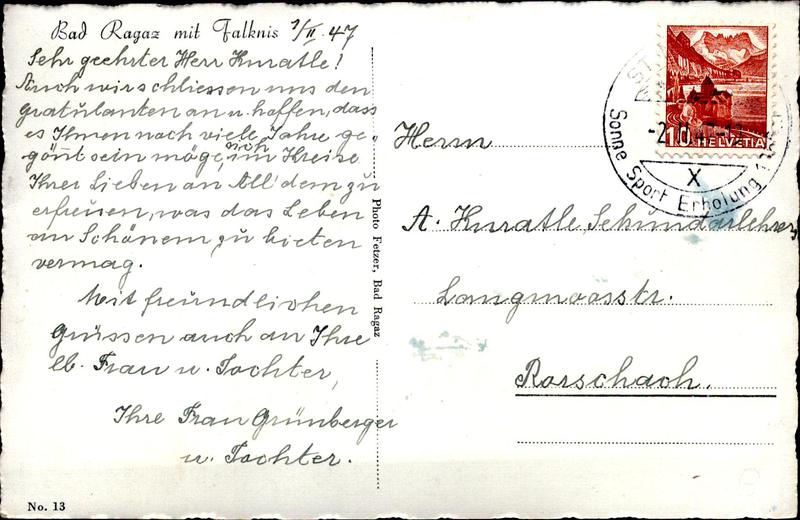 Bad Ragaz mit Falknis 1/II. 47
Sehr geehrter Herr Kuratle!
Auch wir schliessen uns den
gratulanten an u. hoffen, dass
es Ihnen noch viele Jahre ge-
gönnt sein möge, sich im Kreise
Ihrer Lieben an All' dem zu
erfreuen, was das Leben
an Schönem zu bieten
vermag.
Mit freundlichen
Grüssen auch an Ihre
lb. Frau u. Tochter,
Ihre Frau Grünberger
u. Tochter.
No. 13
Photo Fetzer, Bad Ragaz
HELVETIA
10
Sonne Sport Erholung
X
Herrn
A. Kuratle, Sekundarlehrer
Langmoosstr.
Rorschach.